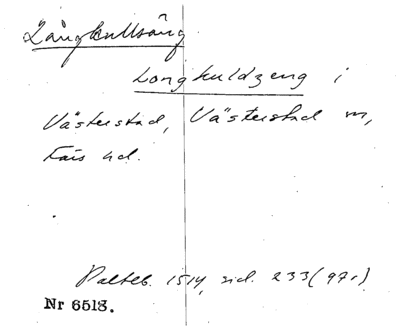 Långkullsäng
Longkuldzeng i
Västerstad, Västerstad m,
Färs hd.
Palteb. 1514, sid. 233 (97r)
Nr 6513.